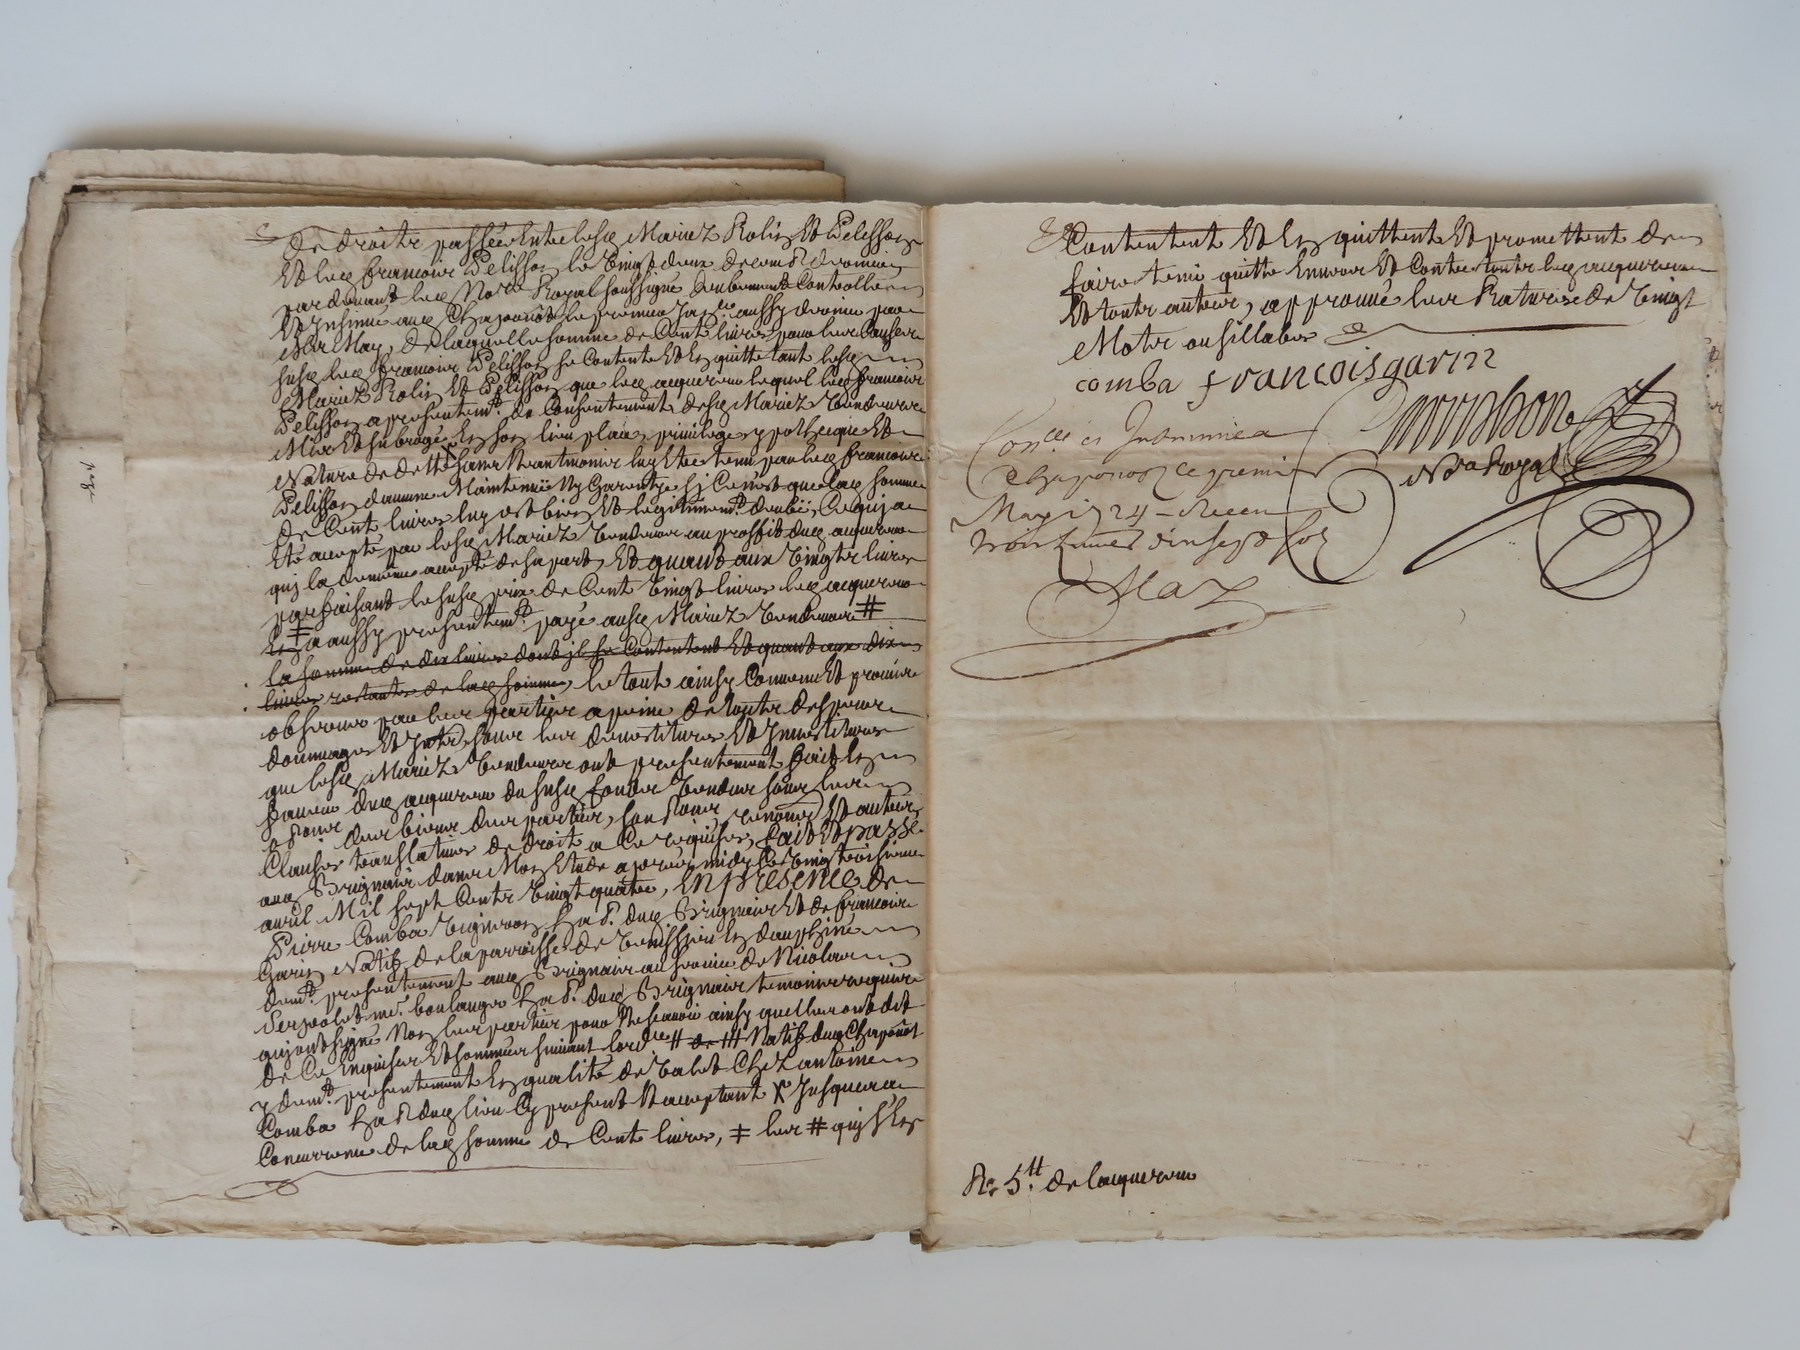 de droitz passée Entre lesd Mariez Rolin Et Pelisson
Et led francois Pelisson le vingt deux decembre dernier
par devant led Nore Royal soussigné deubement Controllé
Et Insinué aud Chaponost le premier aussy dernier par
Mr May, de laquelle somme de Cent livres pour les Causes
susd led francois Pelisson se Contente Et En quitte tant lesd
Mariez Rolin Et Pelisson que led acquereur lequel led francois
Pelisson a presentemt du Consentement desd Mariez vendeurs
Mis Et subrogé En son lieu place, privilege ypotheque Et
Nature de dette sans Neantmoins luy Estre tenu par led francois
Pelisson d'aucune Maintenüe Ny Garentye sy Ce n'est que lad somme
de Cent livres luy est bien Et legitimemt deubüe, Ce qui a
Eté accepté par lesd Mariez vendeurs au proffit dud acquereur
qui la de même accepté de sa part, Et quant aux vingt livres
parfaisant le susd prix de Cent vingt livres led acquereur
‡ a aussy presentemt payé ausd Mariez vendeurs #
la somme de dix livres dont ils se Contentent Et quant aux dix
livres restantes de lad somme, le tout ainsy Convenu Et promis
observer par les parties a peine de toutz despens
dommages Et Intz sous les devestitures Et Investitures
que lesd Mariez vendeurs ont presentement fait En
faveur dud acquereur du susd fondz vendu sous les
obligations des biens des parties, soumissions renonciations Et autres
Clauses translatives de droit a Ce requises, fait Et passé
aud Brignais dans Mon Etude apres midy Ce vingt troisieme
avril Mil sept Centz vingt quatre, En presence de
Pierre Comba vigneron dud Brignais Et de francois
Garin Natif de la parroisse de venissieu En dauphiné
demt presentement aud Brignais au service de Nicolas
boulanger dud Brignais temoins requis
qui ont signé Non les parties pour Ne scavoir ainsy quelles ont dit
de Ce Enquises Et sommées suivant lordce # de # Natif dud Chaponost
y demt presentement En qualité de valet Chez antoine
Comba dud lieu Cy present Et acceptant X Jusques a
Concurrence de lad somme de Cent livres, ‡ les # qui s'En
Contentent Et En quittent Et promettent de
faire tenir quitte Envers Et Contre toutz led acquereur
Et toutz autres, approuvé les Ratures de vingt
Motz ou sillabes
comba françois garin
No Royal
Conllé et Insinué a
Chaponost ce premier
May 1724 - Receu
trois livres dix sept sols
Maz
Re 5tt de lacquereur